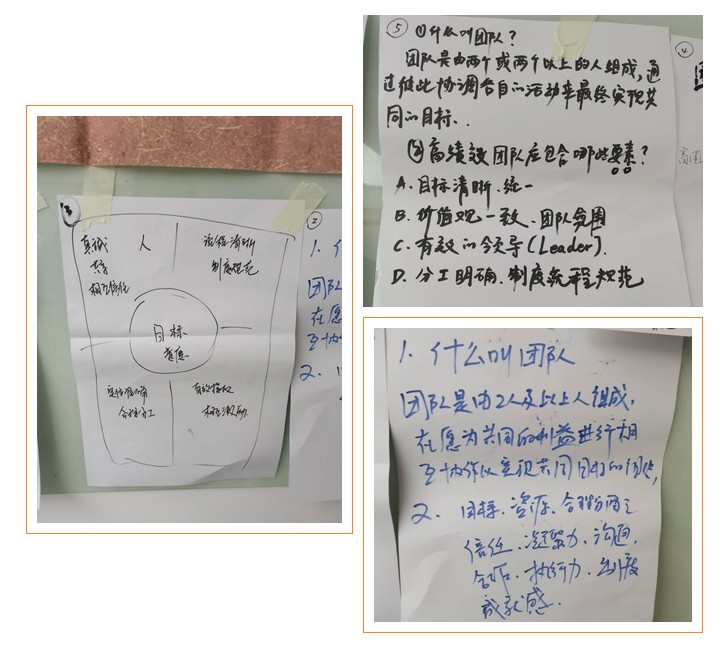 3
真诚
共享
相互信任
人
流程清晰
制度规范
目标
意愿
合理分工
有效授权
相互激励
2
1.
团队
在愿
互协
2.
5 ①什么叫团队？
团队是由两个或两个以上的人组成，通
过彼此协调各自的活动来最终实现共
同的目标．
②高绩效团队应包含哪些要素？
A．目标清晰．统一
B．价值观一致．团队氛围
C．有效的领导(Leader)．
D．分工明确．制度流程规范
4
1．什么叫团队
团队是由2人及以上人组成，
在愿为共同的利益进行相
互协作以实现共同目标的团队，
2．目标．资源．合理分工
信任．凝聚力．沟通．
合作．执行力．制度
成就感．